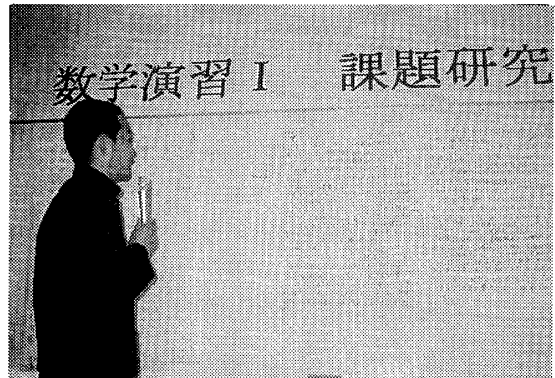 数学演習Ⅰ 課題研究